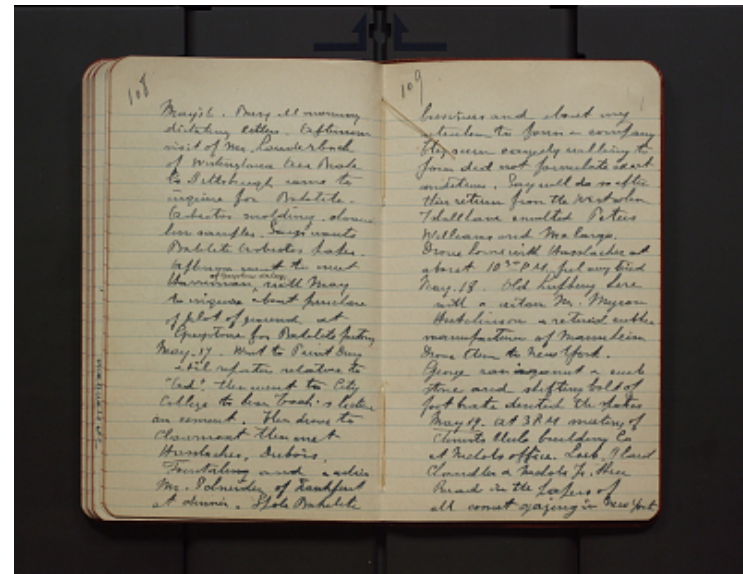 108
May 16. Busy all morning
dictating letters. Afternoon
visit of Mr. Lauderback
of Westinghouse Elec
Pittsburgh came to
inquire for Bakelite.
Asbestos molding.
him samples. Says wants
Bakelite Asbestos
Afternoon went to meet
of Greystone
Harriman, with May
to inquire about purchase
of plot of ground at
Greystone for Bakelite factory
May. 17. Went to Paint Drug
& Oil reporter relative to
"Cad", then went to City
College to hear Toch's lecture
on cement. Then drove to
Claremont then met
Hasslacher, Dubois,
and
Mr. Schneider of Frankfurt
at dinner. Spoke Bakelite
109
business and about my
intention to form a company
They seem very willing to
join did not formulate exact
conditions. Say will do so after
their return from the West when
I shall have consulted Peters
Williams and
Drove home with Hasslacher at
about 10 30 P.M. feel very tired
May. 18. Old here
with a certain Mr.
Hutchinson a retired rubber
manufacturer of Mannheim
Drove them to New York.
George ran against a curb
stone and shifting bolt of
foot brake
May 19. at 3 P.M meeting of
Chemists Club building Co
at Nichols office. Loeb,
Chandler & Nichols Jr. there
Read in the papers of
all comet gazing in New York